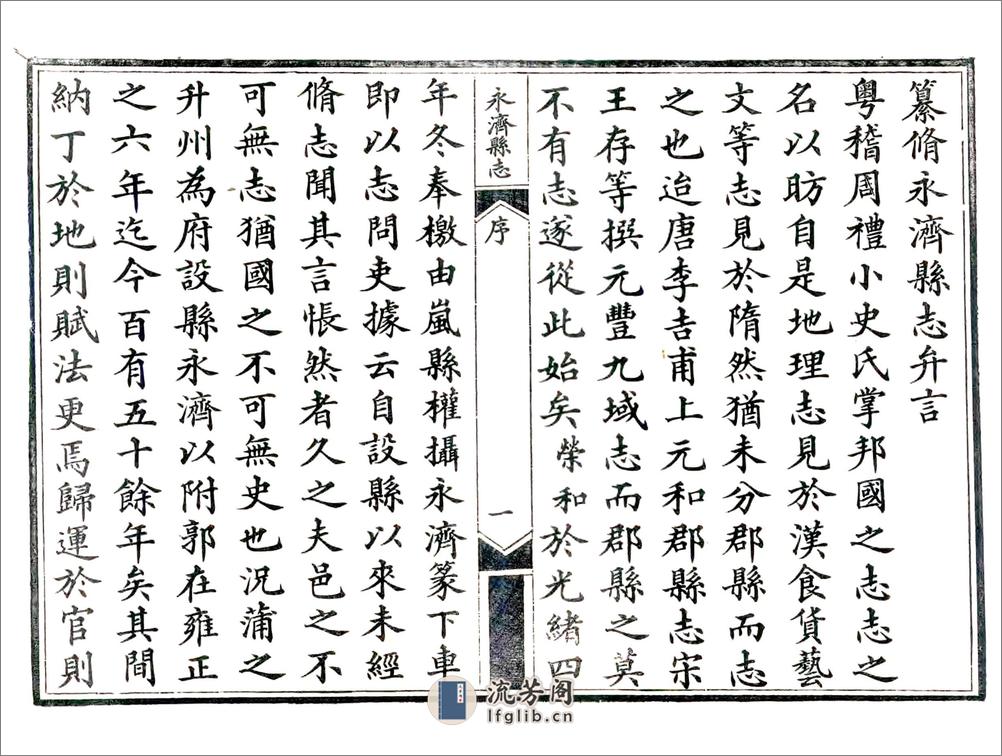 纂脩永濟縣志弁言
粵稽周禮小史氏掌邦國之志志之
名以昉自是地理志見於漢食貨藝
文等志見於隋然猶未分郡縣而志
之也迨唐李吉甫上元和郡縣志宋
王存等撰元豐九域志而郡縣之莫
不有志遂從此始矣榮和於光緒四
永濟縣志
序
一
年冬奉檄由嵐縣權攝永濟篆下車
即以志問吏據云自設縣以來未經
脩志聞其言悵然者久之夫邑之不
可無志猶國之不可無史也況蒲之
升州為府設縣永濟以附郭在雍正
之六年迄今百有五十餘年矣其間
納丁於地則賦法更焉歸運於官則
流芳阁
lfglib.cn